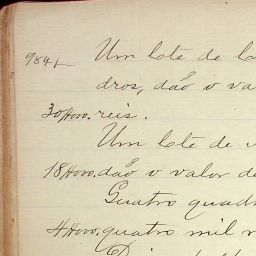 984 Um lote de
dros, dão o va
30 reis.
Um lote de
18 dão o valor de
Quatro quad
4 quatro mil